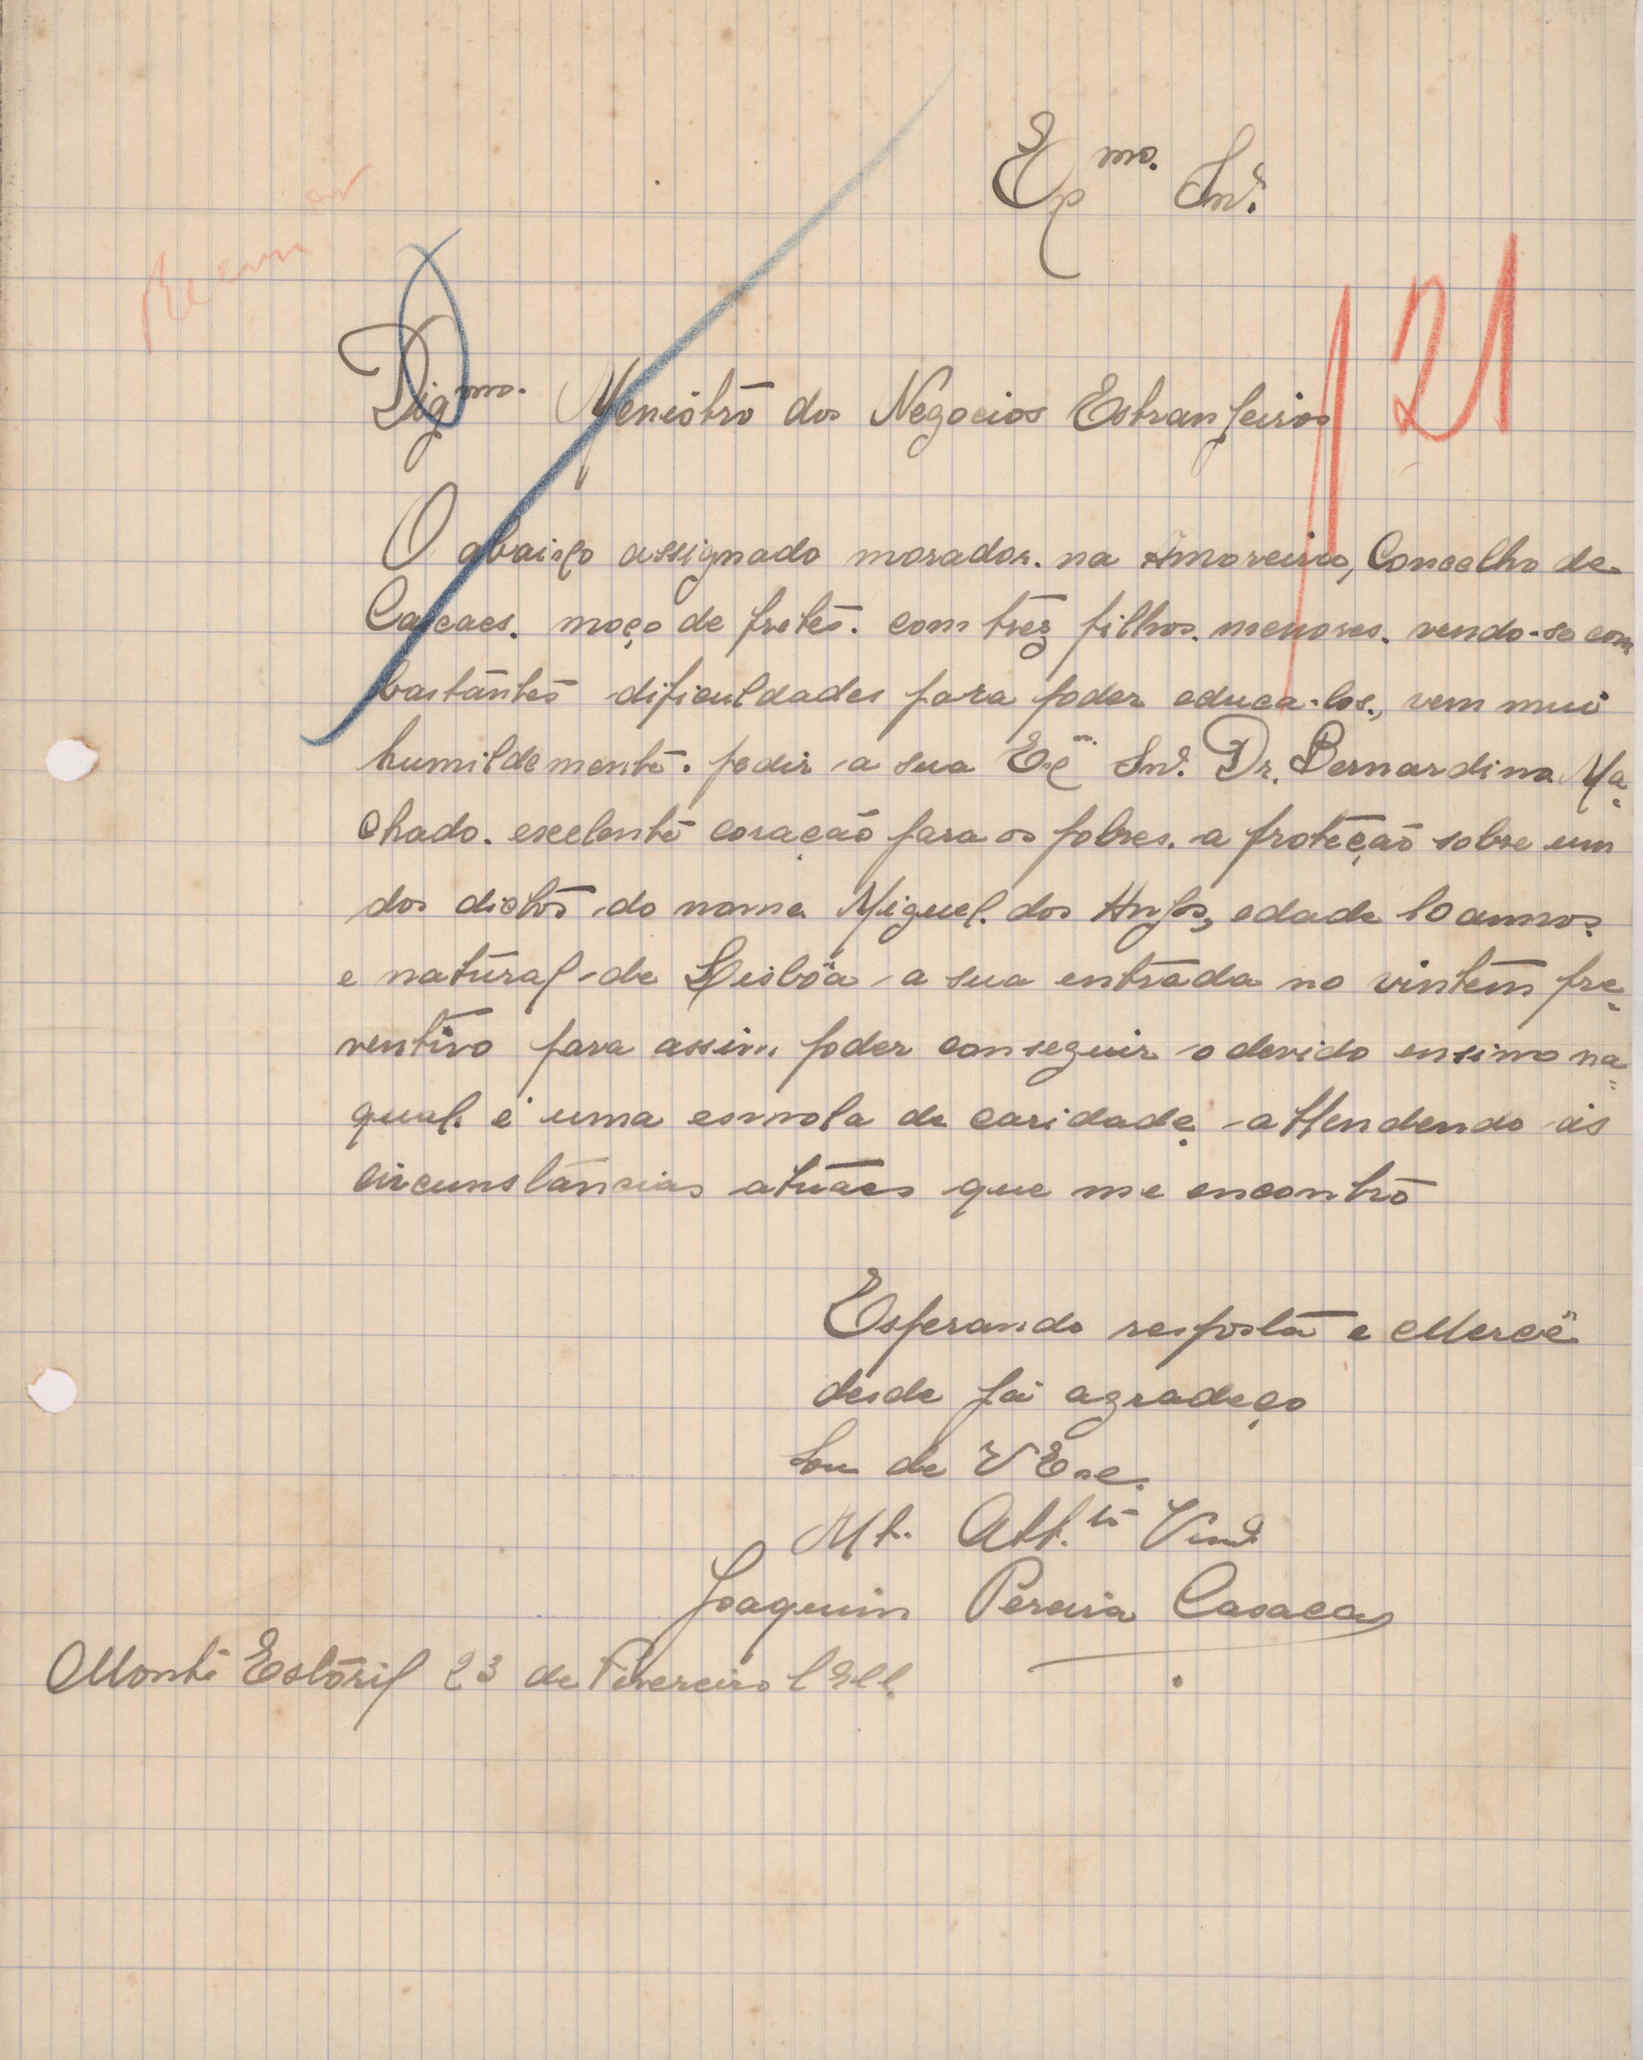 Ex.mo Snr.
121
Dig.mo Menistro dos Negocios Estranjeiros
O abaixo assignado morador. na Amoreira, Concelho de
Cascaes. moço de fretes. com trez filhos. menores. vendo-se com
bastantes dificuldades para poder educa-los., vem mui
humildemente. pedir a sua Exc Snr. Dr. Bernardino Ma-
chado. exelente coração para os pobres. a proteção sobre um
dos dictos do nome Miguel. dos Anjos, edade 10 annos.
e natural de Lisboa a sua entrada no vintem pre-
ventivo para assim poder conseguir o devido ensimo na
qual. é uma esmola de caridade attendendo ás
circunstancias atuaes que me encontro
Esperando resposta e Mercê
desde já agradeço
Sou de V Exc.
Mt. Att.to Vnr.
Joaquim Pereira Casacas
Monte Estoril 23 de Fevereiro 1911.